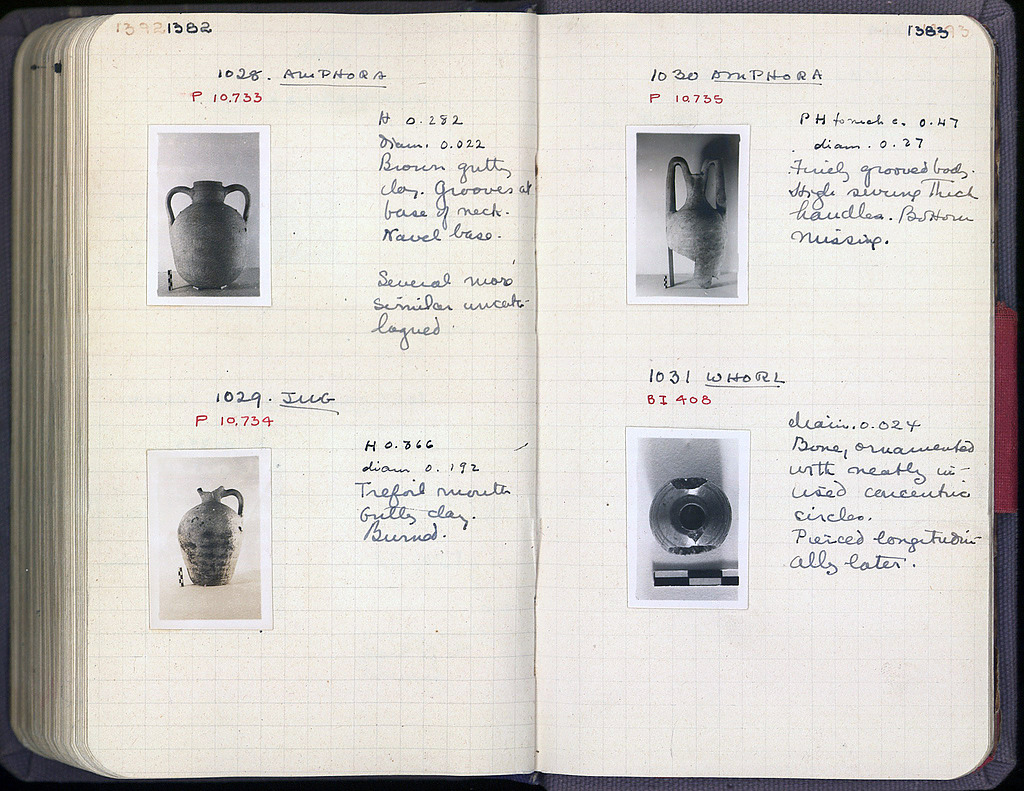 1392 1382
1028. AMPHORA
P 10.733
H 0.282
Diam. 0.022
Brown gritty
clay. Grooves at
base of neck.
Navel base.
Several more
similar uncata-
logued.
1029. JUG
P 10.734
H 0.366
diam 0.192
Trefoil mouth
Gritty clay.
Burned.
1383
1030 AMPHORA
P 10.735
PH to neck c. 0.47
diam. 0.27
Finely grooved body.
High swung thick
handles. Bottom
missing.
1031 WHORL
BI 408
diam. 0.024
Bone, ornamented
with neatly in-
cised concentric
circles.
Pierced longitudin-
ally later.